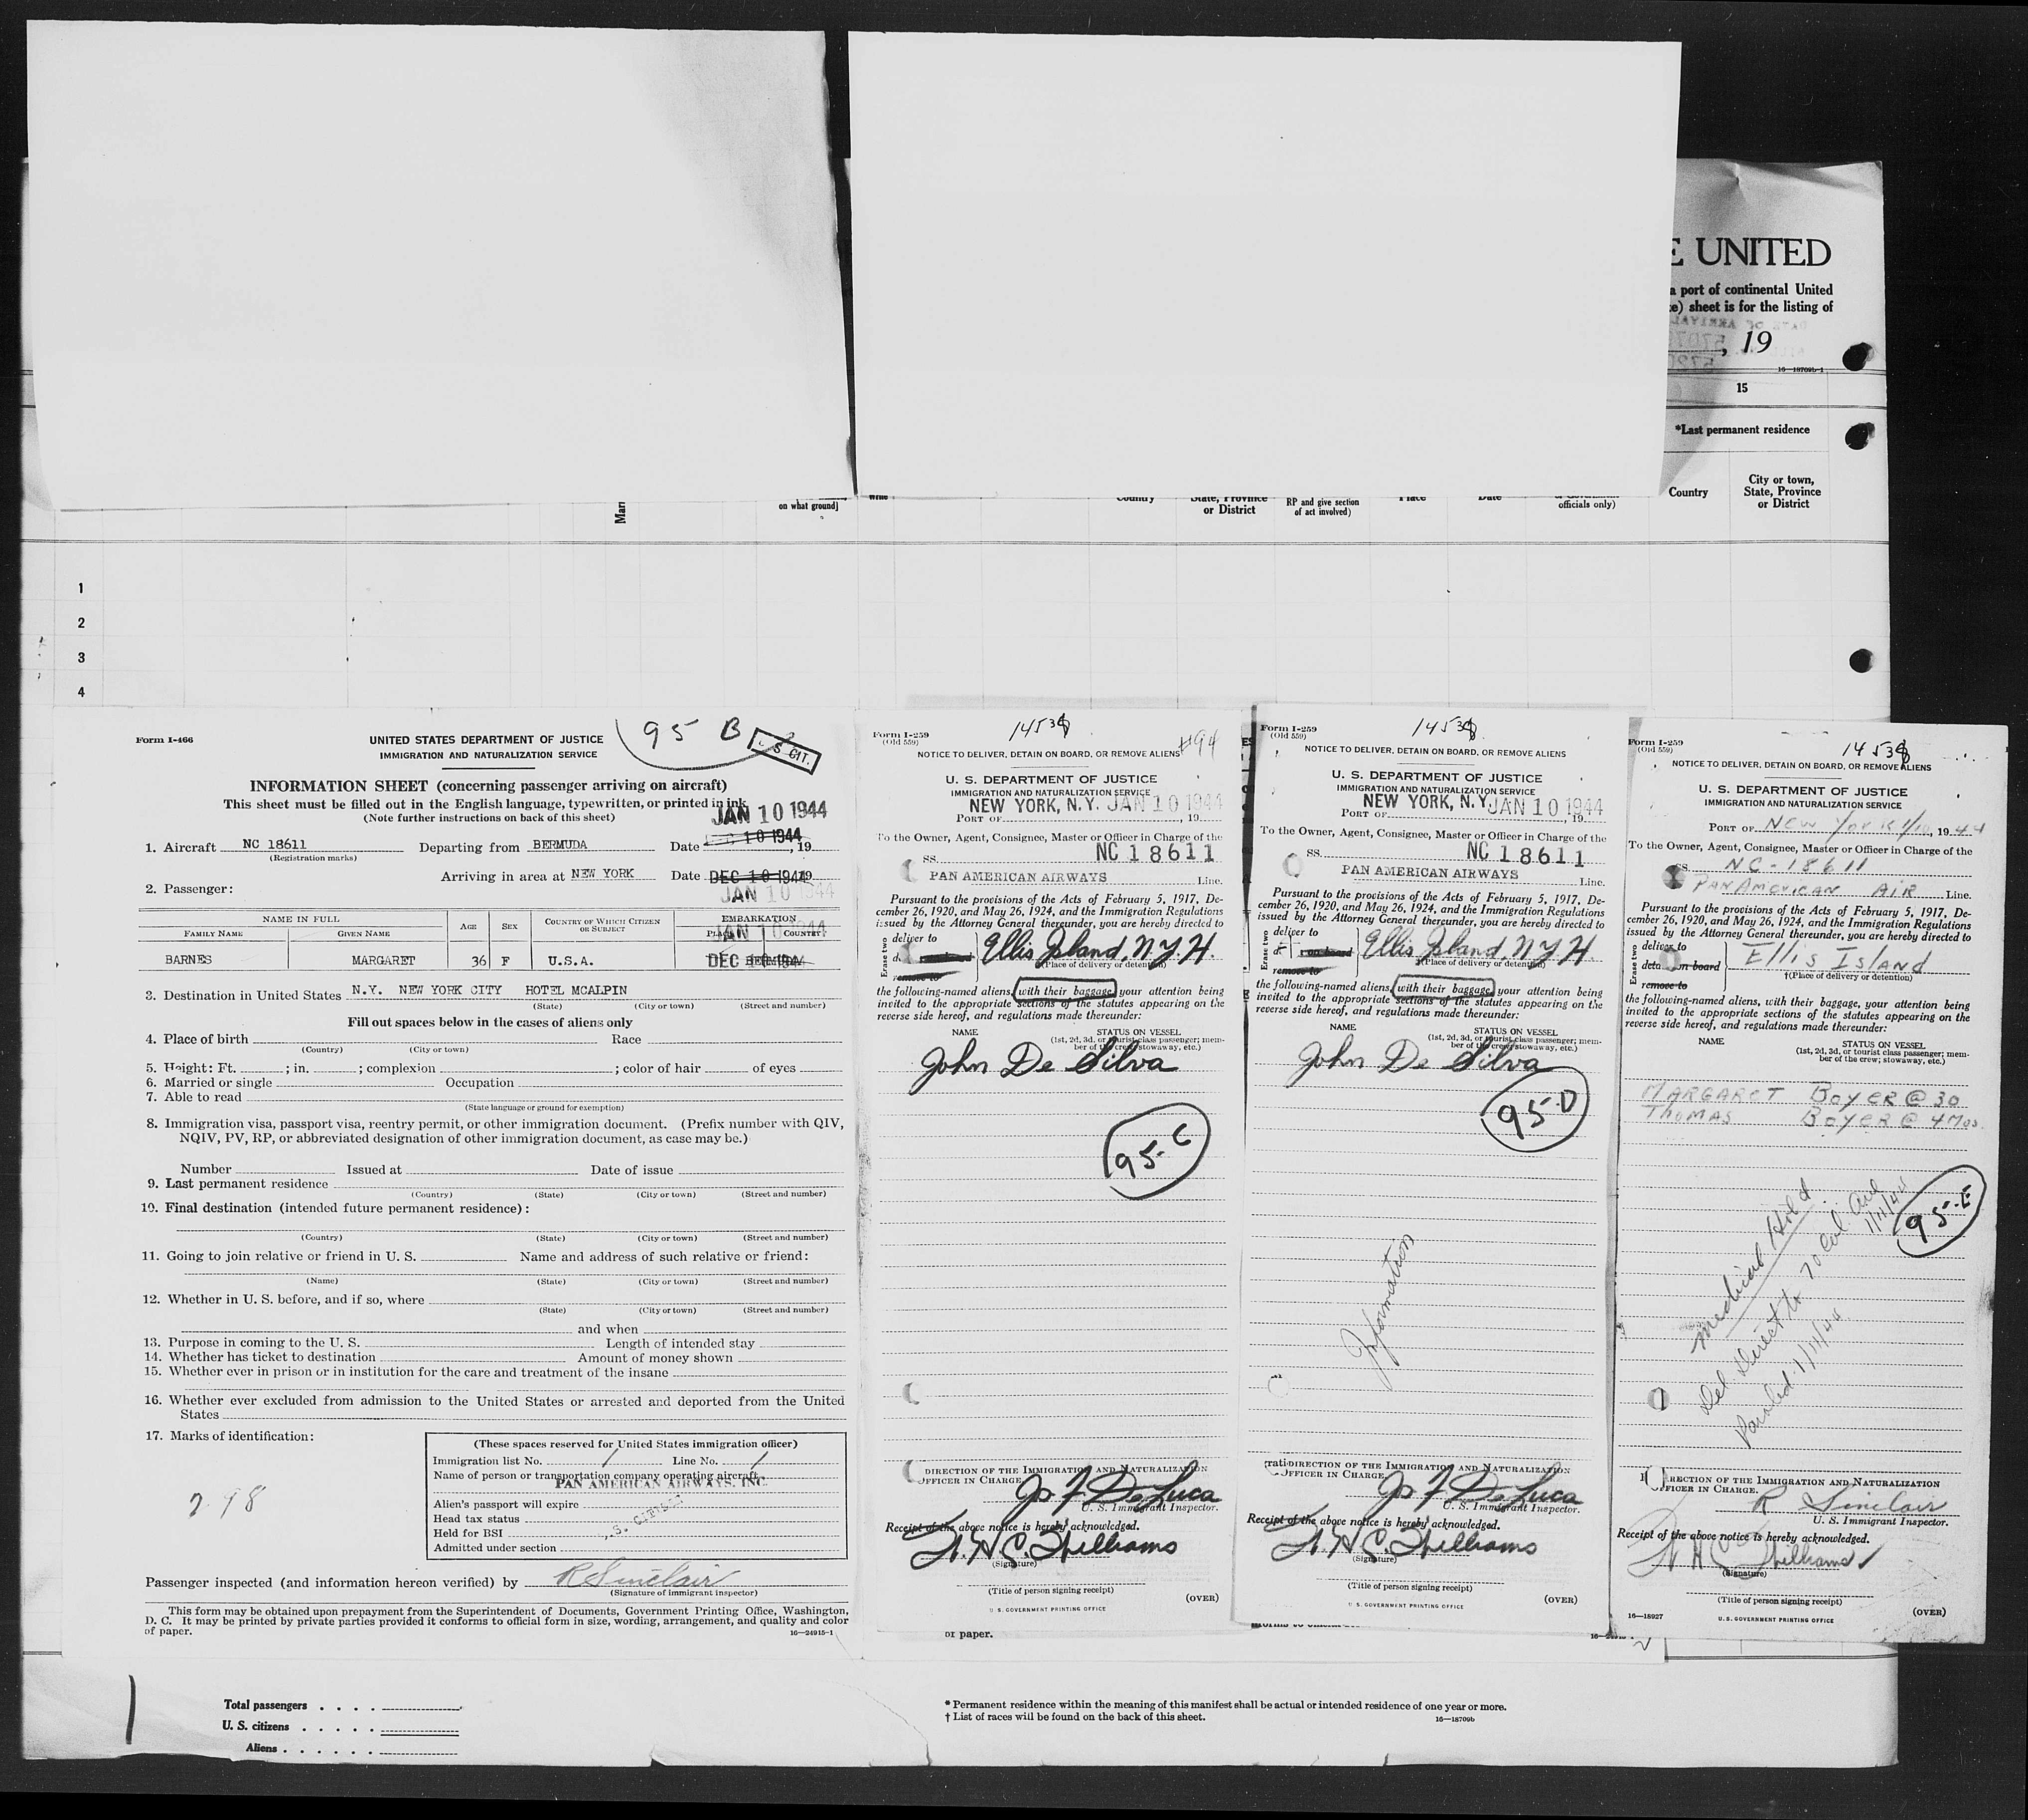 E UNITED
a port of continental United
e) sheet is for the listing of
, 19
16—18709b-1
15
*Last permanent residence
Country
City or town,
State, Province
or District
on what ground]
Country
State, Province
or District
RP and give section
of act involved)
Place
Date
officials only)
1
2
3
4
Form I-466
95 B
U S CIT.
UNITED STATES DEPARTMENT OF JUSTICE
IMMIGRATION AND NATURALIZATION SERVICE
INFORMATION SHEET (concerning passenger arriving on aircraft)
This sheet must be filled out in the English language, typewritten, or printed in ink
(Note further instructions on back of this sheet)
JAN 10 1944
1. Aircraft NC 18611 Departing from BERMUDA Date 10 1944, 19
(Registration marks)
Arriving in area at NEW YORK Date DEC 10 1944 19
JAN 10 1944
2. Passenger:
NAME IN FULL
FAMILY NAME
GIVEN NAME
AGE
SEX
COUNTRY OF WHICH CITIZEN
OR SUBJECT
EMBARKATION
PLACE
COUNTRY
JAN 10 1944
BARNES MARGARET 36 F U.S.A. DEC 10 1944 BERMUDA
3. Destination in United States N.Y. NEW YORK CITY HOTEL MCALPIN
(State) (City or town) (Street and number)
Fill out spaces below in the cases of aliens only
4. Place of birth Race
(Country) (City or town)
5. Height: Ft. ; in. ; complexion ; color of hair of eyes
6. Married or single Occupation
7. Able to read
(State language or ground for exemption)
8. Immigration visa, passport visa, reentry permit, or other immigration document. (Prefix number with QIV,
NQIV, PV, RP, or abbreviated designation of other immigration document, as case may be.)
Number Issued at Date of issue
9. Last permanent residence
(Country) (State) (City or town) (Street and number)
10. Final destination (intended future permanent residence):
(Country) (State) (City or town) (Street and number)
11. Going to join relative or friend in U. S. Name and address of such relative or friend:
(Name) (State) (City or town) (Street and number)
12. Whether in U. S. before, and if so, where
(State) (City or town) (Street and number)
and when
13. Purpose in coming to the U. S. Length of intended stay
14. Whether has ticket to destination Amount of money shown
15. Whether ever in prison or in institution for the care and treatment of the insane
16. Whether ever excluded from admission to the United States or arrested and deported from the United
States
17. Marks of identification:
298
(These spaces reserved for United States immigration officer)
Immigration list No. 1 Line No. 1
Name of person or transportation company operating aircraft
PAN AMERICAN AIRWAYS, INC.
Alien's passport will expire
Head tax status
Held for BSI
U.S. CITIZEN
Admitted under section
Passenger inspected (and information hereon verified) by R Sinclair
(Signature of immigrant inspector)
This form may be obtained upon prepayment from the Superintendent of Documents, Government Printing Office, Washington,
D. C. It may be printed by private parties provided it conforms to official form in size, wording, arrangement, and quality and color
of paper.
16—24915-1
Form I-259
(Old 559)
14538
#94
NOTICE TO DELIVER, DETAIN ON BOARD, OR REMOVE ALIENS
U. S. DEPARTMENT OF JUSTICE
IMMIGRATION AND NATURALIZATION SERVICE
NEW YORK, N.Y. JAN 10 1944
PORT OF , 19
To the Owner, Agent, Consignee, Master or Officer in Charge of the
SS. NC 18611
PAN AMERICAN AIRWAYS Line.
Pursuant to the provisions of the Acts of February 5, 1917, De-
cember 26, 1920, and May 26, 1924, and the Immigration Regulations
issued by the Attorney General thereunder, you are hereby directed to
Erase two
deliver to
remove to
Ellis Island, N.Y.H.
(Place of delivery or detention)
the following-named aliens, with their baggage, your attention being
invited to the appropriate sections of the statutes appearing on the
reverse side hereof, and regulations made thereunder:
NAME STATUS ON VESSEL
(1st, 2d, 3d, or tourist class passenger; mem-
ber of the crew; stowaway, etc.)
John De Silva
95-C
DIRECTION OF THE IMMIGRATION AND NATURALIZATION
OFFICER IN CHARGE.
Jo F De Luca
U. S. Immigrant Inspector.
Receipt of the above notice is hereby acknowledged.
H.C. Williams
(Signature)
(Title of person signing receipt)
(OVER)
U. S. GOVERNMENT PRINTING OFFICE
of paper.
Form I-259
(Old 559)
14538
NOTICE TO DELIVER, DETAIN ON BOARD, OR REMOVE ALIENS
U. S. DEPARTMENT OF JUSTICE
IMMIGRATION AND NATURALIZATION SERVICE
NEW YORK, N.Y. JAN 10 1944
PORT OF , 19
To the Owner, Agent, Consignee, Master or Officer in Charge of the
SS. NC 18611
PAN AMERICAN AIRWAYS Line.
Pursuant to the provisions of the Acts of February 5, 1917, De-
cember 26, 1920, and May 26, 1924, and the Immigration Regulations
issued by the Attorney General thereunder, you are hereby directed to
Erase two
deliver to
remove to
Ellis Island, N.Y.H.
(Place of delivery or detention)
the following-named aliens, with their baggage, your attention being
invited to the appropriate sections of the statutes appearing on the
reverse side hereof, and regulations made thereunder:
NAME STATUS ON VESSEL
(1st, 2d, 3d, or tourist class passenger; mem-
ber of the crew; stowaway, etc.)
John De Silva
95-D
Information
DIRECTION OF THE IMMIGRATION AND NATURALIZATION
OFFICER IN CHARGE.
Jo F De Luca
U. S. Immigrant Inspector.
Receipt of the above notice is hereby acknowledged.
H.C. Williams
(Signature)
(Title of person signing receipt)
(OVER)
U S. GOVERNMENT PRINTING OFFICE
Form I-259
(Old 559)
14538
NOTICE TO DELIVER, DETAIN ON BOARD, OR REMOVE ALIENS
U. S. DEPARTMENT OF JUSTICE
IMMIGRATION AND NATURALIZATION SERVICE
PORT OF NEW YORK 1/10, 1944
To the Owner, Agent, Consignee, Master or Officer in Charge of the
SS. NC-18611
PAN AMERICAN AIR Line.
Pursuant to the provisions of the Acts of February 5, 1917, De-
cember 26, 1920, and May 26, 1924, and the Immigration Regulations
issued by the Attorney General thereunder, you are hereby directed to
Erase two
deliver to
detain on board
remove to
Ellis Island
†(Place of delivery or detention)
the following-named aliens, with their baggage, your attention being
invited to the appropriate sections of the statutes appearing on the
reverse side hereof, and regulations made thereunder:
NAME STATUS ON VESSEL
(1st, 2d, 3d, or tourist class passenger; mem-
ber of the crew; stowaway, etc.)
MARGARET BOYER @ 30
THOMAS BOYER @ 4 Mos.
95-E
Medical Hold
Del Direct to 70 Col. Ave 1/11/44
Paroled 1/11/44
DIRECTION OF THE IMMIGRATION AND NATURALIZATION
OFFICER IN CHARGE.
R Sinclair
U. S. Immigrant Inspector.
Receipt of the above notice is hereby acknowledged.
H C Williams
(Signature)
(Title of person signing receipt)
16—18927
U. S. GOVERNMENT PRINTING OFFICE
(OVER)
Total passengers . . . .
U. S. citizens . . . . .
Aliens . . . . . .
* Permanent residence within the meaning of this manifest shall be actual or intended residence of one year or more.
† List of races will be found on the back of this sheet.
16—18709b